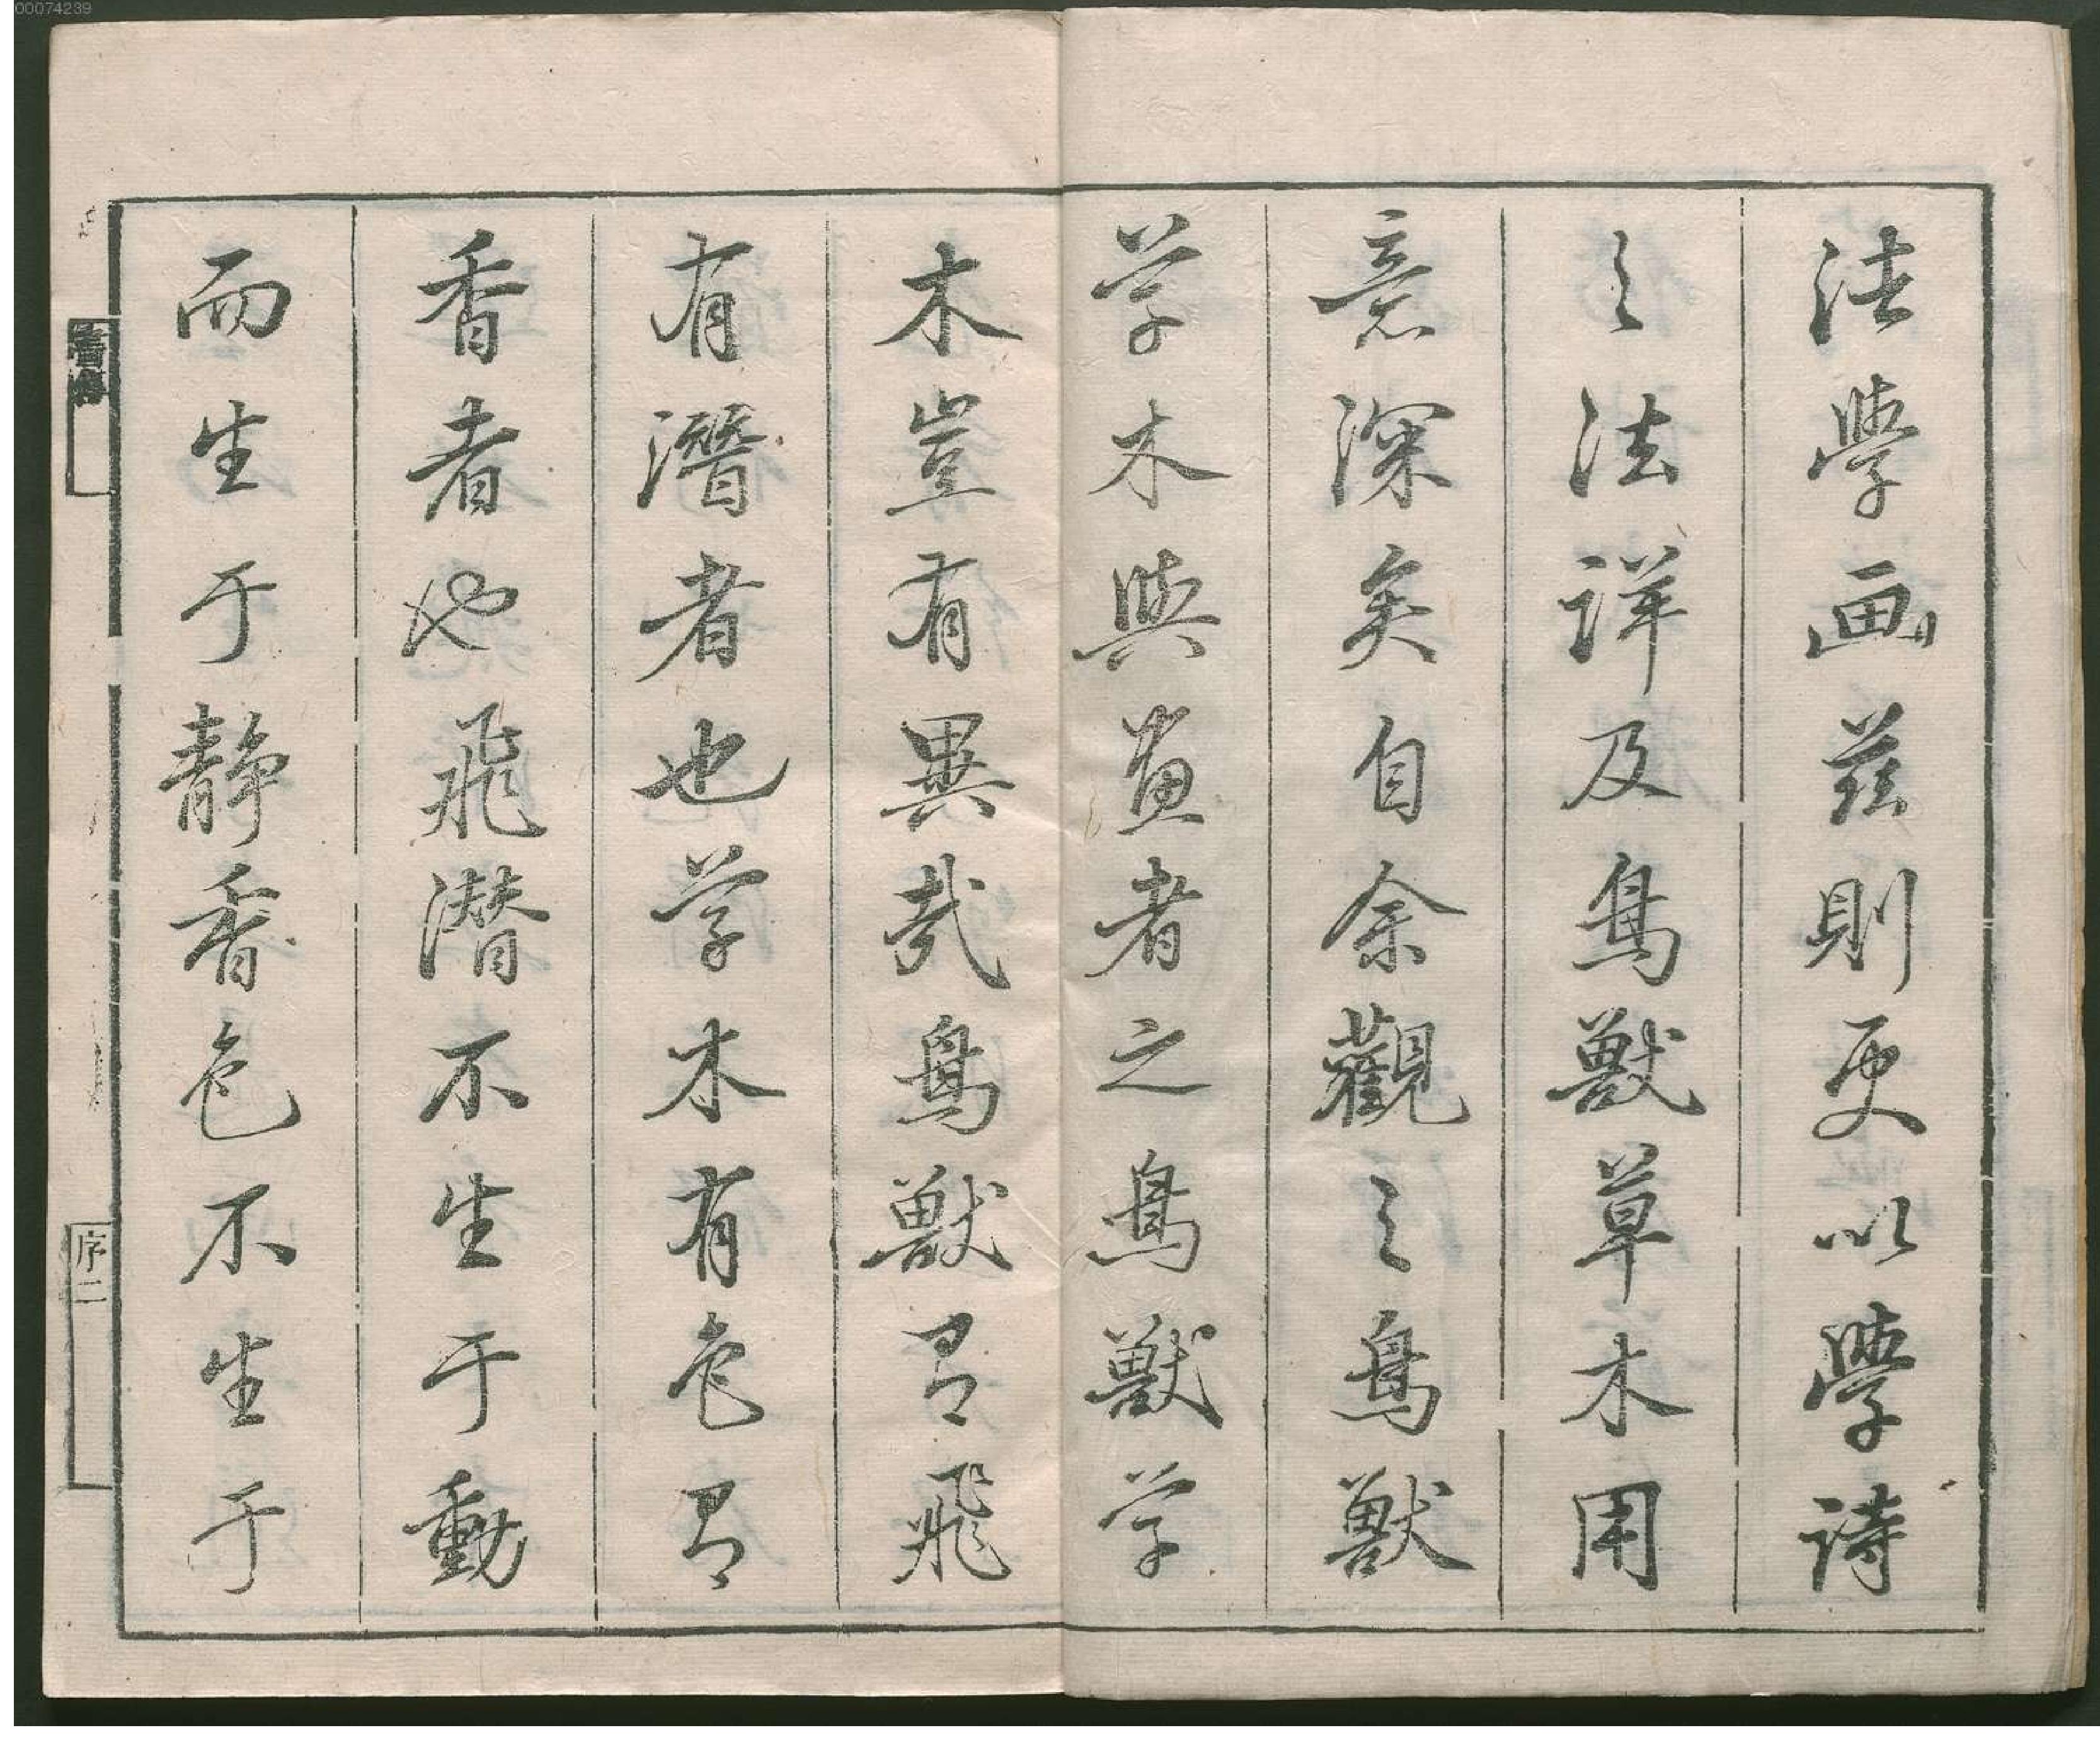 00074239
法學画茲則更以學詩
之法詳及鳥獸草木用
意深矣自余觀之鳥獸
草木與畫者之鳥獸草
木豈有異哉鳥獸有飛
有潛者也草木有色有
香者也飛潛不生于動
而生于靜香色不生于
序二